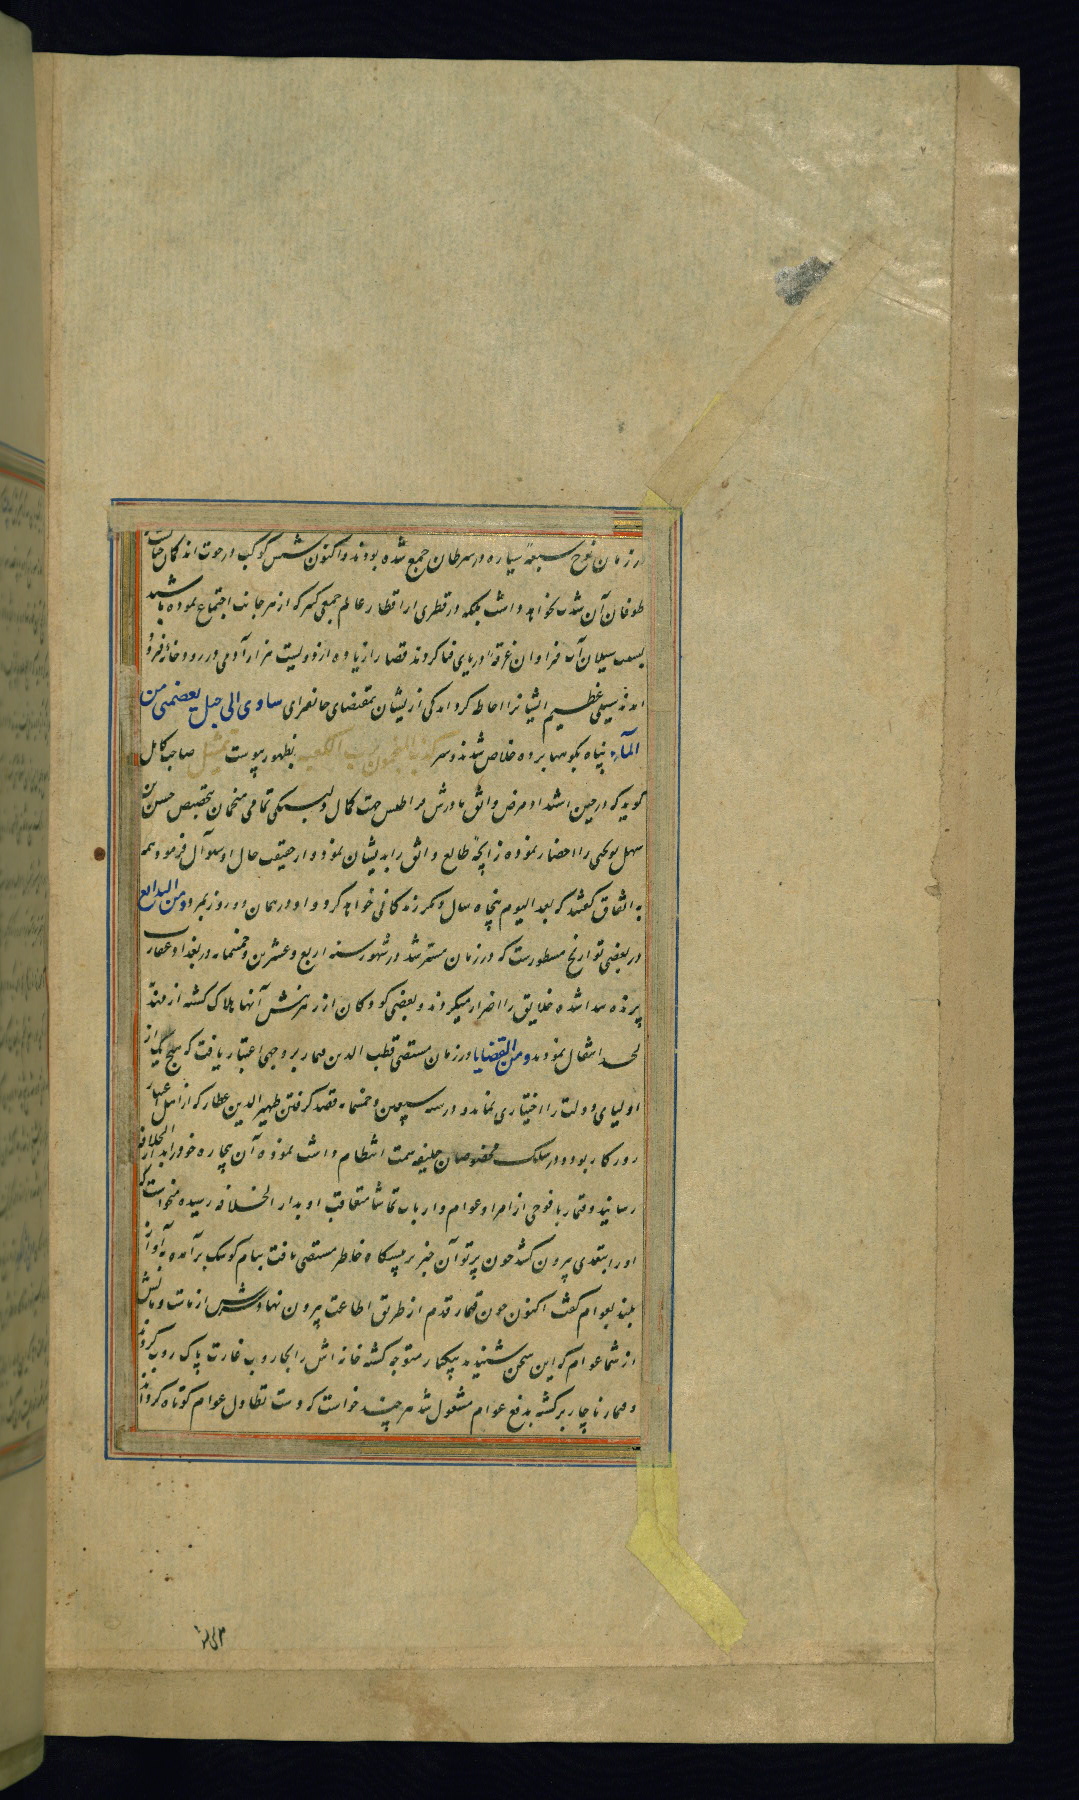 در زمان نوح سبعه سیاره در سرطان جمع شده بودند و اکنون شش کوکب در حوت اند کمال
طوفان آن شدت نخواهد داشت بلکه در قطری از اقطار عالم جمعی کثیر که از هر جانب اجتماع نموده باشند
بسبب سیلان آب فراوان غرقه دریای فنا کردند قضا را زیاده از دویست هزار آدمی در رودخانه فرود
امدند سیلی عظیم ایشانرا احاطه کرد اندکی از ایشان بمقتضای جانفزای ساوی الی جبل یعصمنی من
المآء پناه بکوهها برده خلاص شدند و سر کذب المنجمون برب الکعبه بظهور پیوست تمثیل صاحب کامل
کوید که در حین اشتداد مرض واثق مادرش بر اطلس جهت کمال دلبستگی تمامی منجمان بتخصیص حسن بن
سهل نوبختی را احضار نموده زایجه طالع واثق را بدیشان نمود و از حقیقت حال او سوآل فرمود همه
به اتفاق گفتند که بعد الیوم پنجاه سال دیگر زندگانی خواهد کرد و او در همان دو روز بمرد ومن البدایع
در بعضی تواریخ مسطورست که در زمان مسترشد در شهور سنه اربع و عشرین و خمسمایه در بغداد عقارب
پرنده پیدا شده خلایق را اضرار میکردند و بعضی کودکان از زهر نیش آنها هلاک کشته از مهد
لحد انتقال نمودند ومن القضایا در زمان مستضی قطب الدین قیمار بر وجهی اعتبار یافت که هیچ یک از
اولیای دولت را اختیاری نماند و در سنه سبعین و خمسمایه قصد کرفتن ظهیر الدین عطار که از اهل اعتبار
روزکار بود و در سلک مخصوصان خلیفه سمت انتظام داشت نموده آن بیچاره خود را بدار الخلافه
رسانید و قیمار با فوجی از امرا و عوام و ارباب تماشا متعاقب او بدار الخلافه رسیده میخواست که
او را بتعدی بیرون کشد چون پرتو آن خبر بر پیشکاه خاطر مستضی تافت ببام کوشک برآمده به آواز
بلند بعوام گفت اکنون چون قیمار قدم از طریق اطاعت بیرون نهاد سرش از ماست و مالش
از شما عوام که این سخن شنیدند بیکبار متوجه کشته خانه اش را بجاروب غارت پاک روب کردند
و قیمار ناچار برکشته بدفع عوام مشغول شد هر چند خواست که دست تطاول عوام کوتاه کرداند